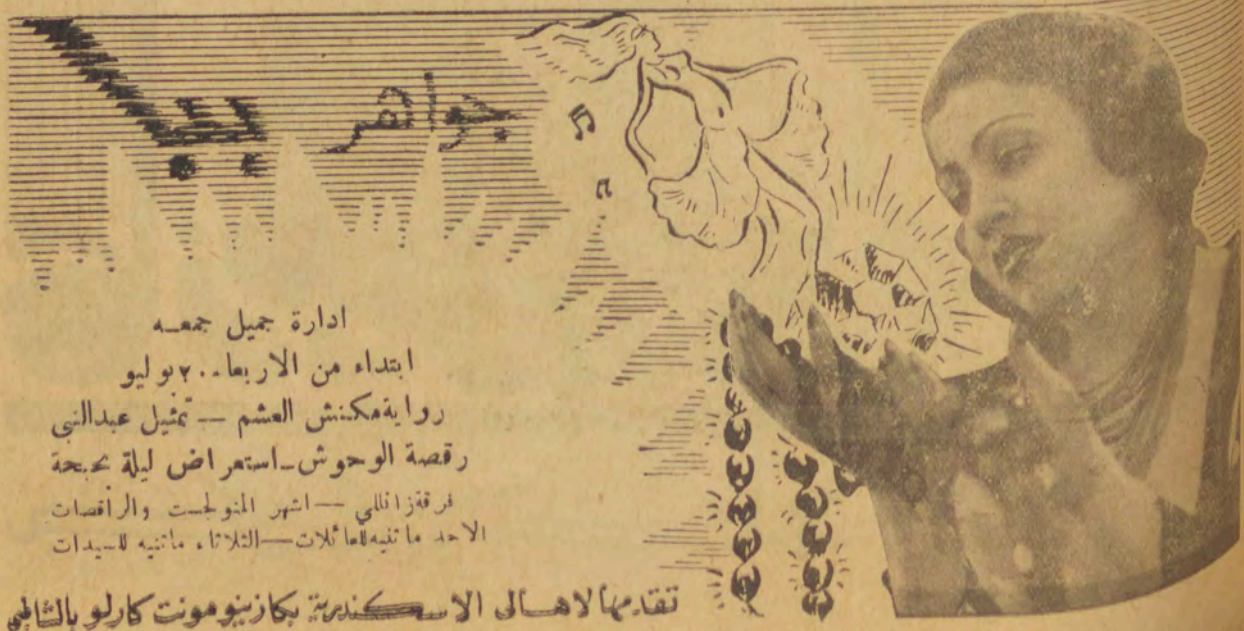 جواهر ببا
ادارة جميل جمعه
ابتداء من الاربعاء ٢٠ يوليو
رواية مكنش العشم — تمثيل عبدالنبى
رقصة الوحوش - استعراض ليلة بحبحة
فرقة زانللي — اشهر المنولجست والراقصات
الاحد ماتنيه للعائلات — الثلاثاء ماتنيه للسيدات
تقدمها لاهالى الاسكندرية بكازينو مونت كارلو بالشاطبي